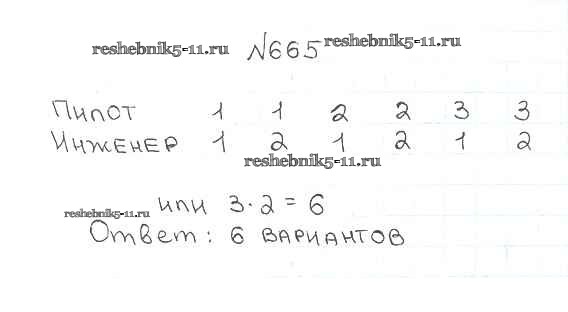 reshebnik5-11.ru №665 reshebnik5-11.ru
Пилот 1 1 2 2 3 3
Инженер 1 2 1 2 1 2
reshebnik5-11.ru
reshebnik5-11.ru или 3·2=6
Ответ: 6 вариантов